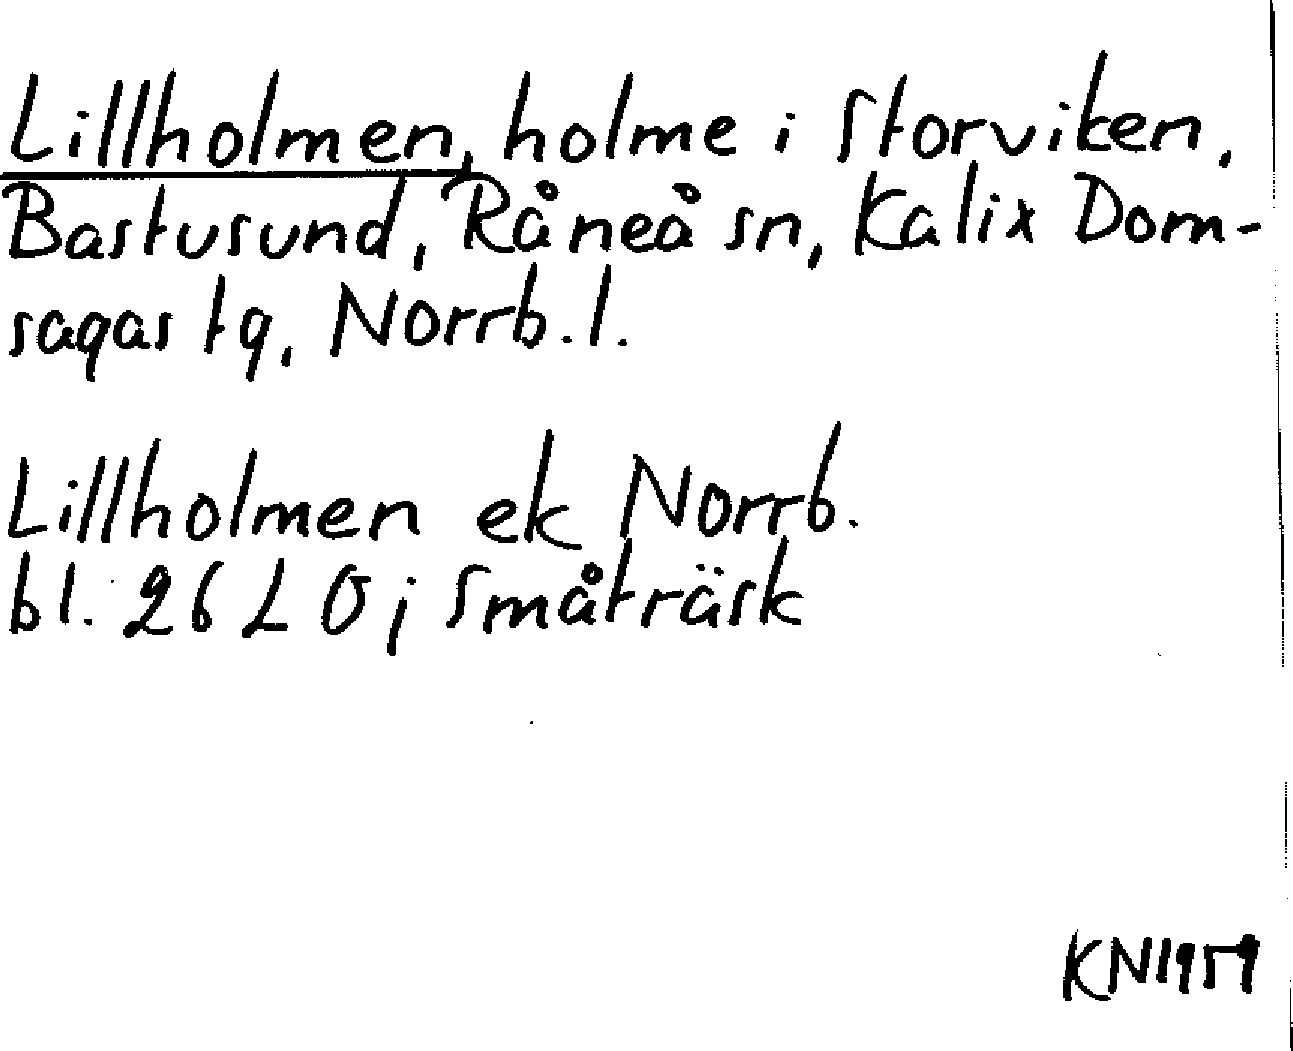 Lillholmen, holme i Storviken,
Bastusund, Råneå sn, Kalix Dom-
sagas tg, Norrb. l.
Lillholmen ek Norrb.
bl. 26 L Ö; Småträsk
KN1959